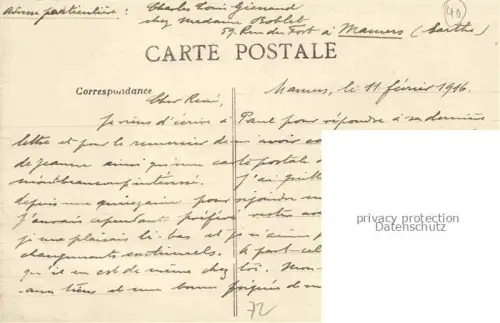 Adresse particulière : Charles Louis
chez Madame Boblet
59, Rue du Fort à Mamers (Sarthe)
40
CARTE POSTALE
Correspondance
Mamers, le 11 février 1916.
Cher René,
Je viens d'écrire à Paul pour répondre à sa dernière
lettre et pour le remercier de m'avoir
de Jeanne ainsi qu'une carte postale
m'ont beaucoup intéressé. J'ai
depuis une quinzaine pour rejoindre
J'aurais cependant préféré
je me plaisais là-bas et je n'aime
changements continuels. A part cela
qu'il en est de même chez toi. Mon
aux tiens et une bonne poignée de
72
privacy protection
Datenschutz